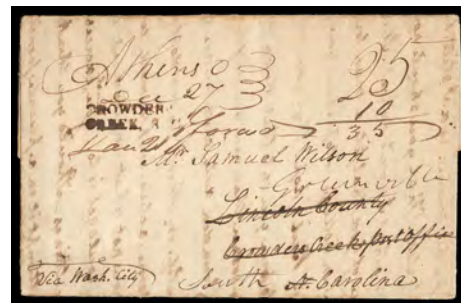 Athens O
Dec 27
25
10
35
CROWDER
CREEK,
Jan 21 forwd
Mr. Samuel Wilson
Greenville
Lincoln County
Crowders Creek, Post Office
South N. Carolina
Via Wash. City